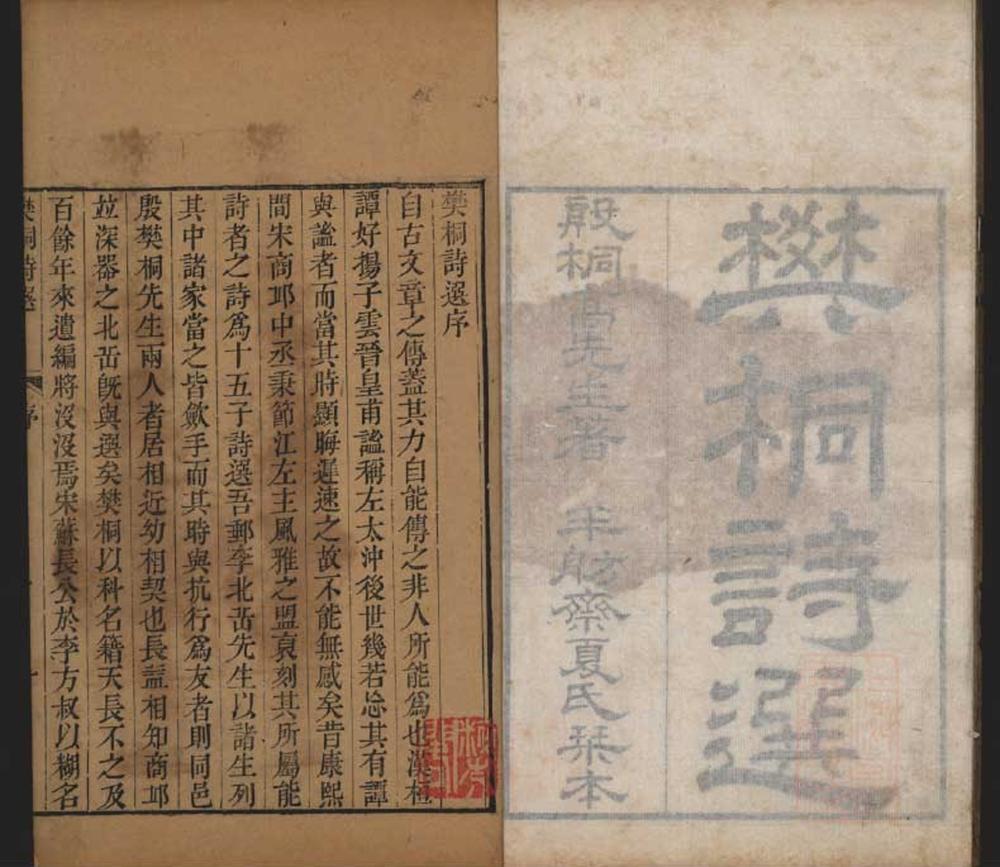 樊桐詩選
殷桐高先生著 半舫齋夏氏琹本
樊桐詩選序
自古文章之傳蓋其力自能傳之非人所能爲也漢桓
譚好揚子雲晉皇甫謐稱左太沖後世幾若忘其有譚
與謐者而當其時顯晦遲速之故不能無感矣昔康熙
間宋商邱中丞秉節江左主風雅之盟裒刻其所屬能
詩者之詩爲十五子詩選吾郵李北岳先生以諸生列
其中諸家當之皆歛手而其時與抗行爲友者則同邑
殷樊桐先生兩人者居相近幼相契也長益相知商邱
竝深器之北岳旣與選矣樊桐以科名籍天長不之及
百餘年來遺編將沒沒焉宋蘇長公於李方叔以糊名
樊桐詩選
序
一